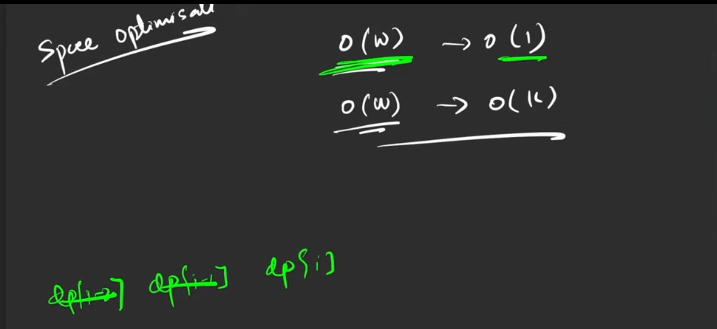 Space optimisati
O(W) → O(1)
O(W) → O(K)
dp[i-2] dp[i-1] dp[i]